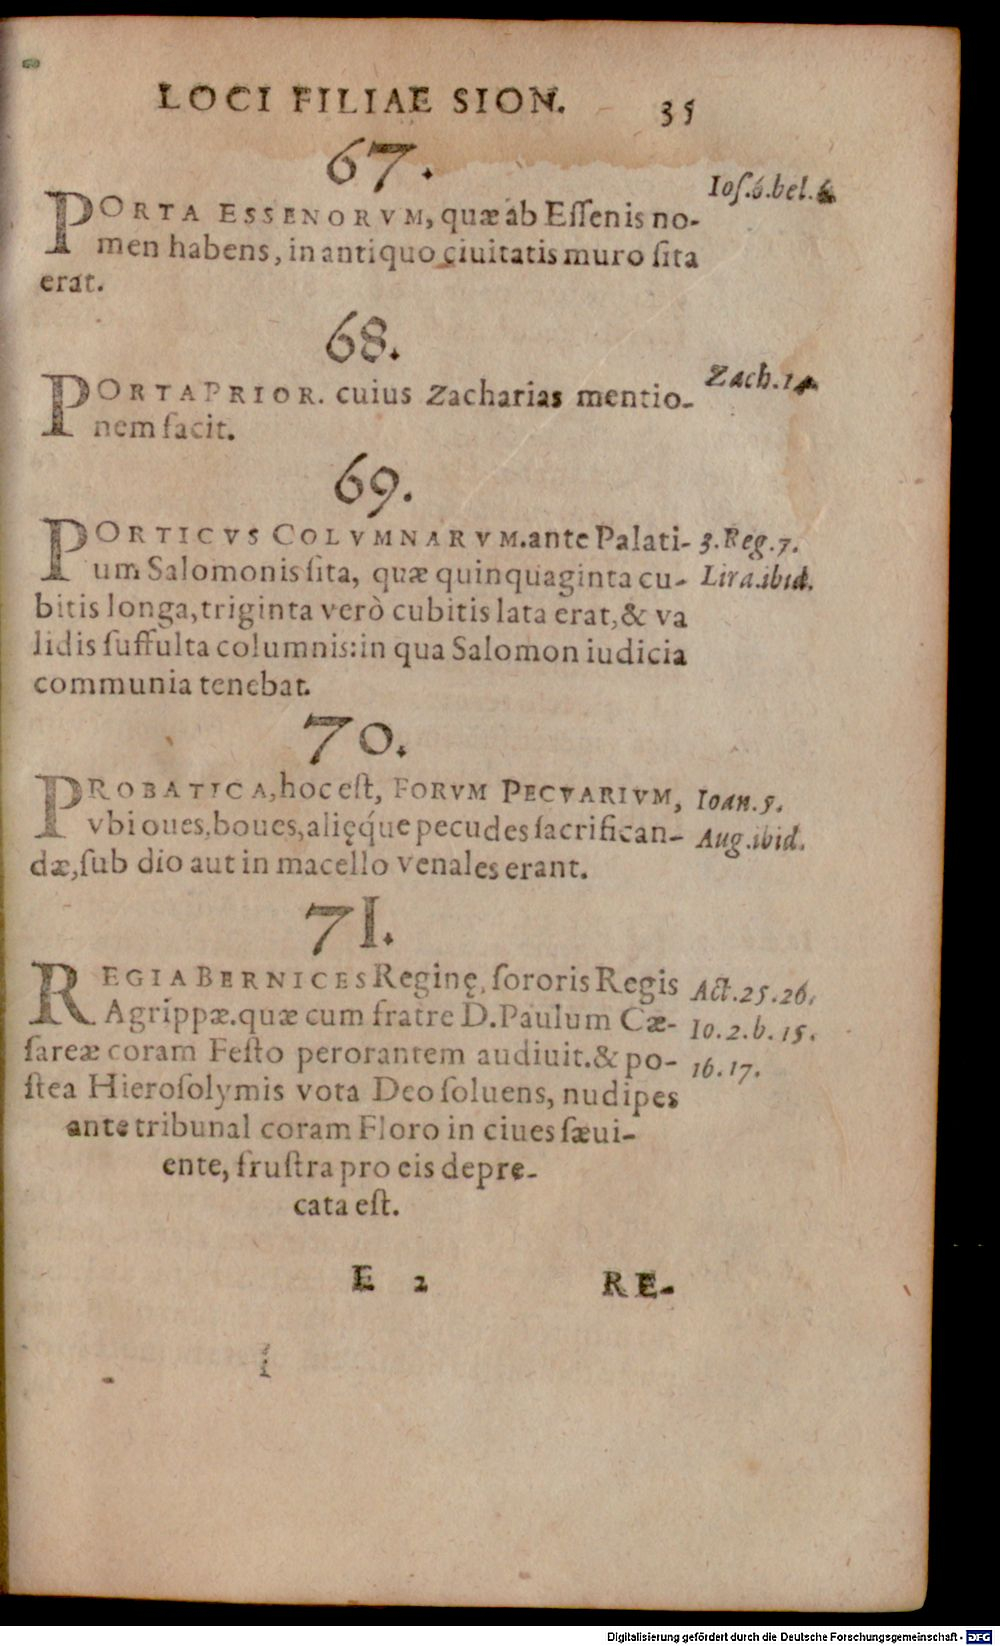 LOCI FILIAE SION. 35
67.
PORTA ESSENORVM, quæ ab Eſſenis no- Ioſ.6.bel.6.
men habens, in antiquo ciuitatis muro ſita
erat.
68.
PORTA PRIOR. cuius Zacharias mentio- Zach.14.
nem facit.
69.
PORTICVS COLVMNARVM.ante Palati- 3.Reg.7.
um Salomonis ſita, quæ quinquaginta cu- Lira.ibid.
bitis longa, triginta verò cubitis lata erat, & va
lidis ſuffulta columnis: in qua Salomon iudicia
communia tenebat.
70.
PROBATICA, hoc eſt, FORVM PECVARIVM, Ioan.5.
vbi oues, boues, alięq́ue pecudes ſacrifican- Aug.ibid.
dæ, ſub dio aut in macello venales erant.
71.
REGIA BERNICES Reginę, ſororis Regis Act.25.26.
Agrippæ. quæ cum fratre D. Paulum Cæ- Io.2.b.15.
ſareæ coram Feſto perorantem audiuit. & po- 16.17.
ſtea Hieroſolymis vota Deo ſoluens, nudipes
ante tribunal coram Floro in ciues ſæui-
ente, fruſtra pro eis depre-
cata eſt.
E 2 RE-
Digitalisierung gefördert durch die Deutsche Forschungsgemeinschaft - DFG